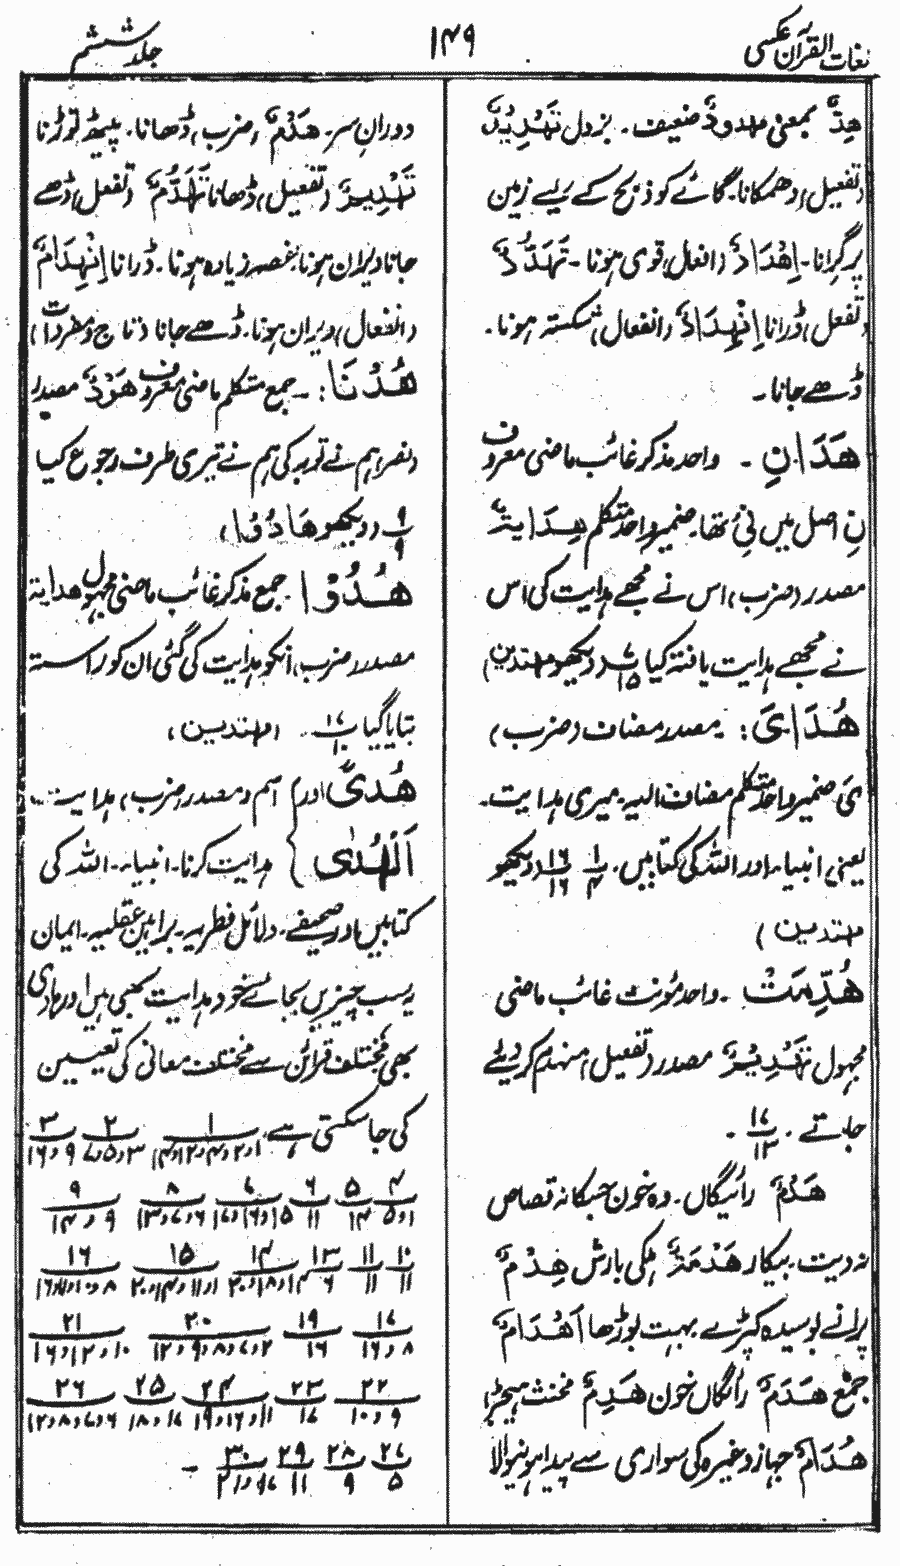 لغات القرآن عکسی
۱۴۹
جلد ششم
ھِدٌّ بمعنی مھدودٌ ضعیف۔ بزدل تَھْدِیْدٌ
(تفعیل) دھمکانا۔ گائے کو ذبح کے لیے زمین
پر گرانا۔ اِھْدَادٌ (افعال) قوی ہونا۔ تَھَدُّدٌ
(تفعل) ڈرانا اِنْھِدَادٌ (انفعال) شکستہ ہونا۔
ڈھے جانا۔
ھَدَانِ ۔ واحد مذکر غائب ماضی معروف
نِ اصل میں نِیْ تھا۔ ضمیر واحد متکلم ھِدَایَۃٌ
مصدر (ضرب) اس نے مجھے ہدایت کی اس
نے مجھے ہدایت یافتہ کیا ۷/۱۵ (دیکھو مھتدین)
ھُدَایَ: مصدر مضاف (ضرب)
یَ ضمیر واحد متکلم مضاف الیہ۔ میری ہدایت۔
یعنی انبیاء اور اللہ کی کتابیں۔ ۱/۴ ۱۶/۱۶ (دیکھو
مھتدین)
ھُدِّمَتْ ۔ واحد مؤنث غائب ماضی
مجہول تَھْدِیْمٌ مصدر (تفعیل) منہدم کر دیئے
جاتے۔ ۱۷/۱۳ ۔
ھَدْمٌ رائیگاں۔ وہ خون جسکا نہ قصاص
نہ دیت۔ بیکار ھَدْمَۃٌ ہلکی بارش ھِدْمٌ
پرانے بوسیدہ کپڑے بہت بوڑھا اَھْدَامٌ
جمع ھَدَمٌ رائگاں خون ھَدِمٌ مخنث ہیجڑا
ھُدَامٌ جہاز وغیرہ کی سواری سے پیدا ہونیوالا
دوران سر۔ ھَدْمٌ (ضرب) ڈھانا۔ پیٹھ توڑنا
تَھْدِیْمٌ (تفعیل) ڈھانا تَھَدُّمٌ (تفعل) ڈھے
جانا ویران ہونا۔ غصہ زیادہ ہونا۔ ڈرانا اِنْھِدَامٌ
(انفعال) ویران ہونا۔ ڈھے جانا (تاج ومفردات)
ھُدْنَا: ۔ جمع متکلم ماضی معروف ھَوْدٌ مصدر
(نصر) ہم نے توبہ کی ہم نے تیری طرف رجوع کیا
۹/۹ (دیکھو ھَادُوْا)
ھُدُوْا ۔ جمع مذکر غائب ماضی مجہول ھدایۃ
مصدر (ضرب) انکو ہدایت کی گئی ان کو راستہ
بتایا گیا ۱۷/۱۰ ۔ (مھتدین)
ھُدًی اور} اسم ومصدر (ضرب) ہدایت ۔۔
اَلْھُدٰی ہدایت کرنا۔ انبیاء۔ اللہ کی
کتابیں اور صحیفے۔ دلائل فطریہ۔ براہین عقلیہ۔ ایمان
یہ سب چیزیں بجائے خود ہدایت بھی ہیں اور ہادی
بھی مختلف قرائن سے مختلف معانی کی تعیین
کی جا سکتی ہے، ۱/۱و۲و۴و۱۲و۱۴ ۲/۳و۵و۷ ۳/۹و۱۶
۴/۱و۵ ۵/۱۴ ۶/۱۱ ۷/۱۵و۱۶و۱۷ ۸/۶و۷و۱۳ ۹/۹و۱۴
۱۰/۱۱ ۱۱/۱۱ ۱۳/۶ ۱۴/۱۴و۱۸و۲۰ ۱۵/۱و۱۱و۱۴و۲۰ ۱۶/۸و۱۰و۱۱و۱۶
۱۷/۸و۱۶ ۱۹/۱۶ ۲۰/۲و۷و۸و۹و۱۲ ۲۱/۱۰و۱۲و۱۶
۲۲/۹و۱۰ ۲۳/۱۷ ۲۴/۱۱و۱۶و۱۹ ۲۵/۱۷و۱۸ ۲۶/۶و۷و۸و۱۲
۲۷/۵ ۲۸/۹ ۲۹/۱۱ ۳۰/۱۷و۱۹و۲۱ ۔